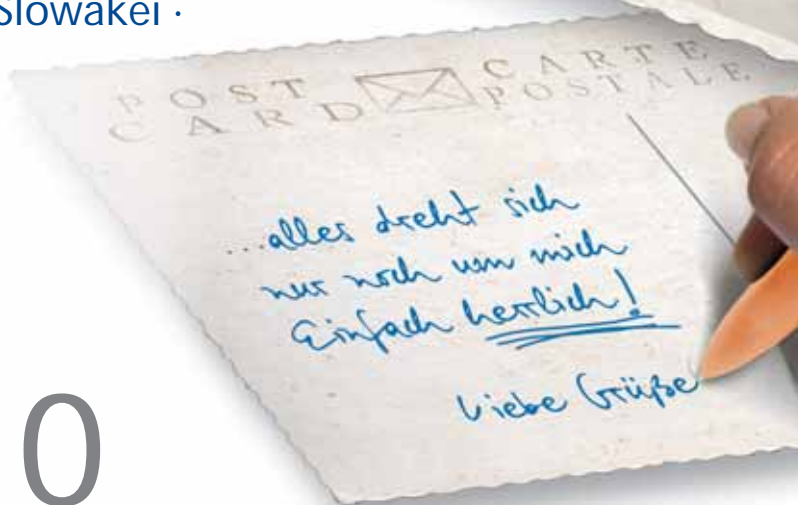 Slowakei ·
POST CARTE
CARD POSTALE
...alles dreht sich
nur noch um mich
Einfach herrlich!
Liebe Grüße
0